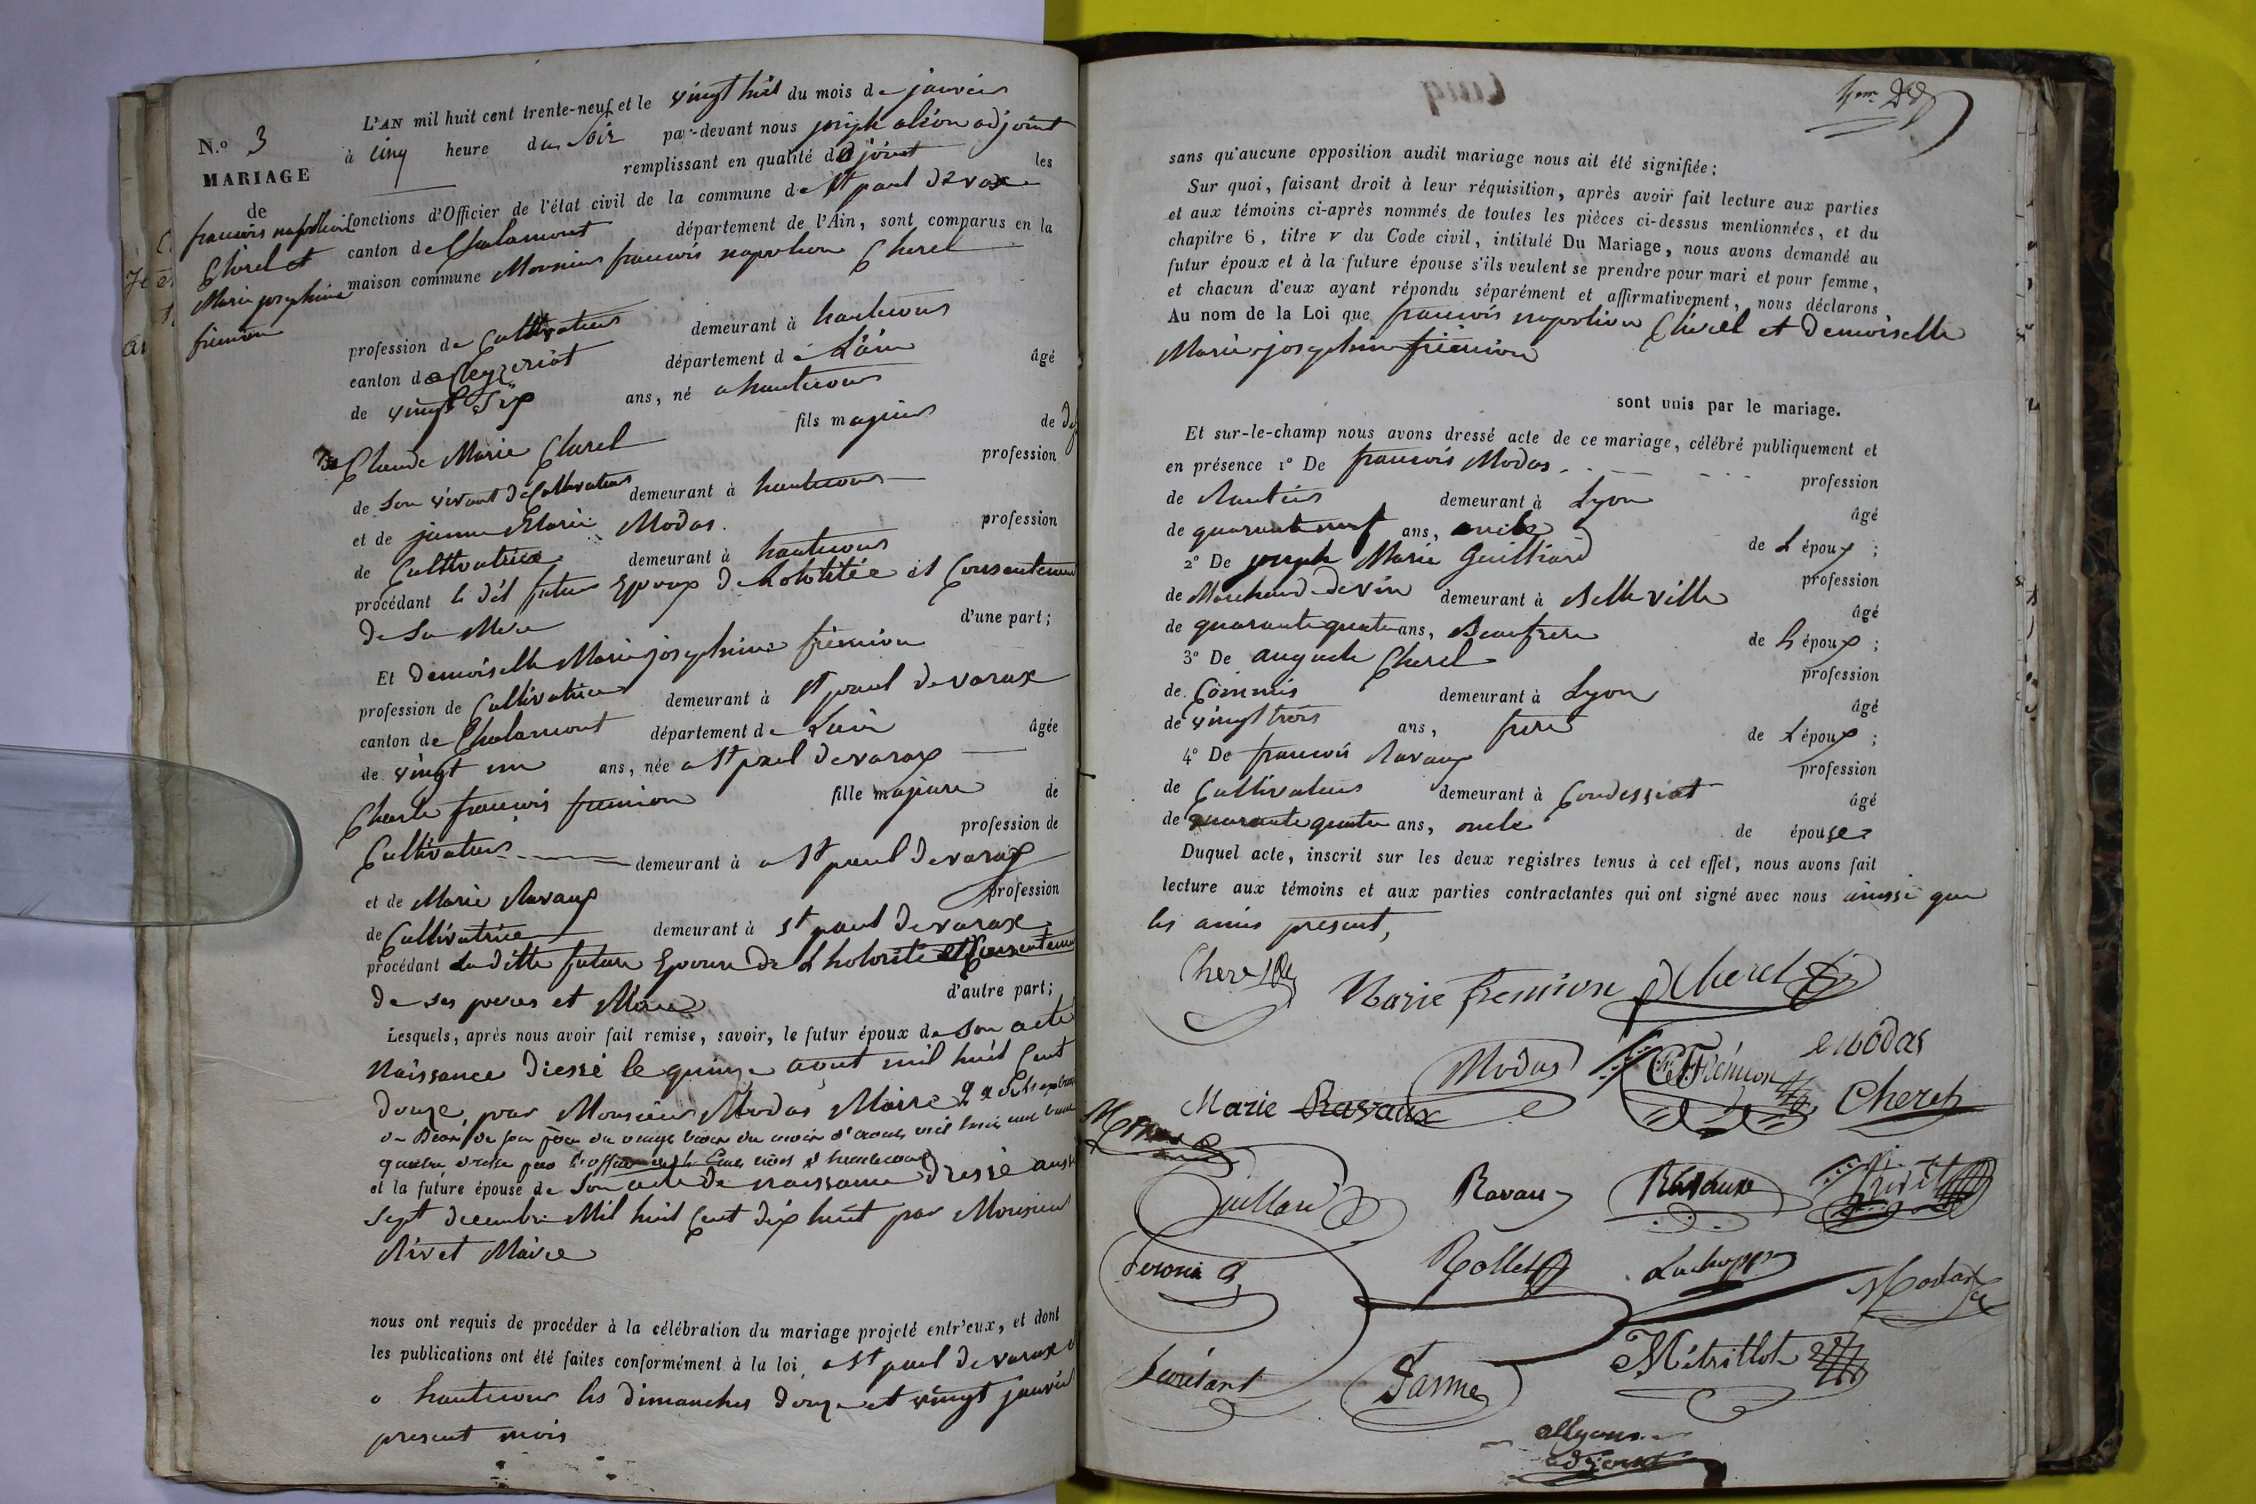 N.º 3
MARIAGE
de
francois napoleon
Cherel et
Marie josephine
fremion
L'AN mil huit cent trente-neuf et le vingt huit du mois de janvier
à cinq heure du soir par-devant nous joseph alion adjoint
remplissant en qualité d'adjoint les
fonctions d'Officier de l'état civil de la commune de st paul de varax
canton de Chalamont département de l'Ain, sont comparus en la
maison commune Monsieur francois napoleon Cherel
profession de Cultivateur demeurant à hautecour
canton de Ceyzeriat département de L'ain âgé
de vingt six ans, né a hautecour
fils majeur de
Claude Marie Cherel profession
de son vivant de Cultivateur demeurant à hautecour
et de janne Marie Modas profession
de Cultivatrice demeurant à hautecour
procédant le dit futur Epoux de et Consentement
de sa Mere d'une part;
Et demoiselle Marie josephine fremion
profession de Cultivatrice demeurant à st paul de varax
canton de Chalamont département de Lain âgée
de vingt un ans, née a st paul de varax
fille majeure de
Charle francois fremion profession de
Cultivateur demeurant à a st paul de varax
et de Marie Ravaux profession
de Cultivatrice demeurant à st paul de varax
procédant La ditte future Epouse de et Consentement
de ses peres et Mere d'autre part;
Lesquels, après nous avoir fait remise, savoir, le futur époux de son acte
Naissance dressé le quinze aout mil huit Cent
douze, par Monsieur Modas Maire
et la future épouse de son acte de naissance dressé aussi
sept decembre Mil huit Cent dix huit par Monsieur
Rivet Maire
nous ont requis de procéder à la célébration du mariage projeté entr'eux, et dont
les publications ont été faites conformément à la loi, a st paul de varax
a hautecour les dimanches douze et vingt janvier
present mois
sans qu'aucune opposition audit mariage nous ait été signifiée;
Sur quoi, faisant droit à leur réquisition, après avoir fait lecture aux parties
et aux témoins ci-après nommés de toutes les pièces ci-dessus mentionnées, et du
chapitre 6, titre V du Code civil, intitulé Du Mariage, nous avons demandé au
futur époux et à la future épouse s'ils veulent se prendre pour mari et pour femme,
et chacun d'eux ayant répondu séparément et affirmativement, nous déclarons
Au nom de la Loi que francois napoleon Cherel et demoiselle
Marie josephine fremion
sont unis par le mariage.
Et sur-le-champ nous avons dressé acte de ce mariage, célébré publiquement et
en présence 1º De francois Modas profession
de Rentier demeurant à Lyon âgé
de quarante neuf ans, oncle de L époux;
2º De joseph Marie Guilliard profession
de Marchand de vin demeurant à Belleville âgé
de quarante quatre ans, Beaufrere de L époux;
3º De auguste Cherel profession
de Commis demeurant à Lyon âgé
de vingt trois ans, frere de L époux;
4º De francois Ravaux profession
de Cultivateur demeurant à Condessiat âgé
de quarante quatre ans, oncle de épouse
Duquel acte, inscrit sur les deux registres tenus à cet effet, nous avons fait
lecture aux témoins et aux parties contractantes qui ont signé avec nous ainssi que
les amis present,
Cherel
Marie fremion
Cherel
Modas
Fremion
Modas
Marie Ravaux
Cherel
Ravaux
Ravaux
Rivet
Rollet
Modas
Métrillot
adjoint